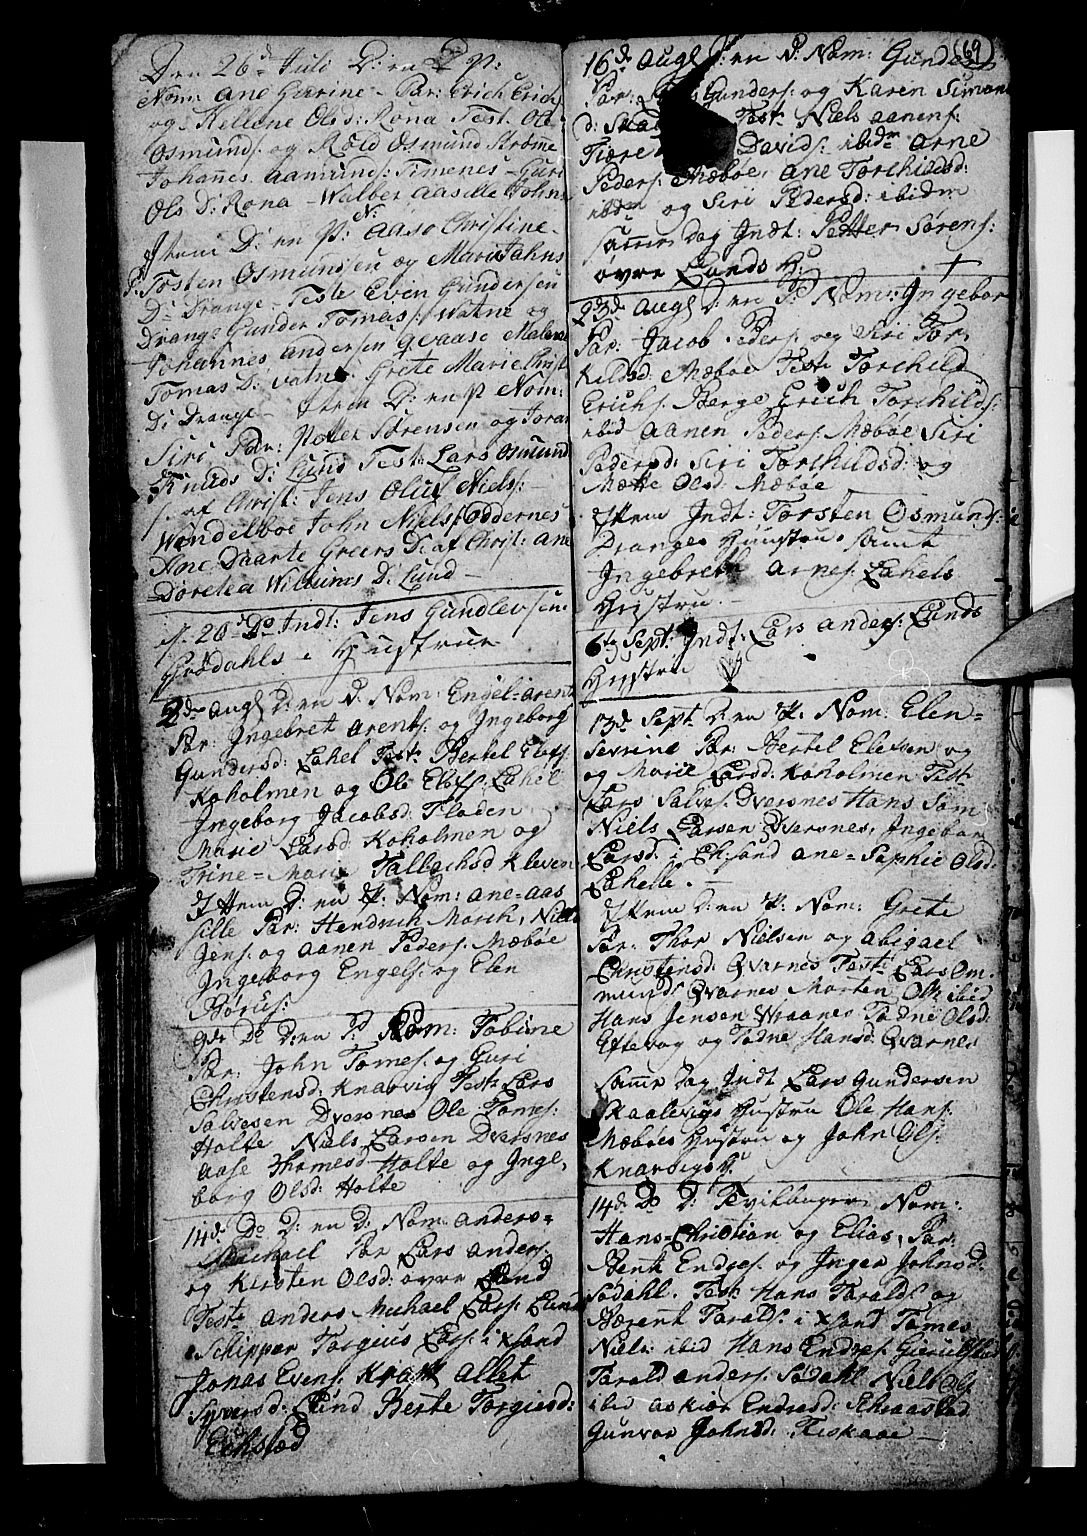 Den 26de Juli D: en P:
Nom: Ane Gurine Par: Erich Erichs
og Hellene Olsd: Rona Test: Ole
Osmunds: og Roald Osmunds Strømme
Johannes Aamunds: Timenes Guri
Ols D: Rona Walber Aasille Johns
Item D: en P: N: Aaso Christine
P: Tosten Osmundsen og Mari Johns
D: Drange Teste Even Gundersen
Drange Gunder Tomas: Watne og
Johannes Andersen Qvaase Malene
Tomas D: Vatne Grete Marie Christ
D: Drange Item D: en P Nom:
Siri Par: Petter Sørensen og Joran
Knuds D: Lund Test: Lars Osmund
s: af Christ: Jens Oluf Niels:
Wendelboe John Niels: Oddernes
Ane Daarte Greers D: af Christ: Ane
Doretea Willums D: Lund
d. 26de Do Indt: Jens Gundlevsen
Grødahls Hustrue
2den Augs D: en P. Nom: Engel=Arent
Par: Ingebret Arents: og Ingeborg
Gundersd: Lahel Test: Bertel Elofs:
Koholmen og Ole Elofs: Lahel
Ingeborg Jacobsd: Floden
Marie Larsd: Koholmen og
Trine=Marie Fallachsd Kleven
Item D: en P: Nom: Ane=Aas
sille Par: Hendrich Morch, Niels
Jens: og Aanen Peders: Mæbøe
Ingeborg Engels: og Elen
Børus:
9de Do D: en P: Nom: Tobine
Par: John Tomes: og Guri
Christensd: Knarvig Test: Lars
Salvesen Dversnes Ole Tomes:
Holte Niels Larsen Dversnes
Aase Thomesd Holte og Inge,
borg Olsd: Holte
14de Do D: en D: Nom: Anders=
Michael Par Lars Anders:
og Kirsten Olsd: øvre Lund
Test: Anders Michael Lars: Lund
Schipper Torgeus Lars: i Xsand
Jonas Evens: Kraft Allet
Syversd: Lund Berte Torgiusd:
Eekstad
69
16de Augs D: en P: Nom: Gunder
Par: Gunders: og Karen Simons
d: Test: Niels Aanens:
Davids: ibidm Arne
Peders: Mæbøe, Ane Torchildsd:
ibdm og Siri Pedersd: ibidem
Samme Dag Indt: Petter Sørens:
øvre Lunds H:
23de Augs D: en P: Nom: Ingebor
Par: Jacob Peders: og Siri Tor
kildsd: Mæbøe Test: Torchild
Erichs: Berge Erich Torchilds:
ibid Aanen Peders: Mæbøe Siri
Pedersd: Siri Torchildsd: og
Mætte Olsd: Mæbøe
Item Indt: Torsten Osmunds:
Dranges Hustrue samt
Ingebreth Arnes: Lahels
Hustrue.
6te Sept: Indt: Lars Anders: Lunds
Hustrue
13de Sept: D: en P: Nom: Elen=
Sevrine Par: Bertel Elessen og
og Marie Larsd: Koholmen Test:
Lars Salves: Dversnes Hans Søm
Niels Larsen Dversnes, Ingebor
Larsd: i Chrsand Ane=Sophie Olsd:
Lahelle.
Item D: en P: Nom: Grete
Par: Thor Nielsen og Abigael
Christensd: Qvarnes Test: Lars Om
munds Qvarnes Morten Ols: ibid
Hans Jensen Vraanes Tadne Olsd:
Eftevog og Todne Hansd: Qvarnes
Samme Dag Indt Lars Gundersen
Skaalevigs Hustrue Ole Hans:
Mæbøes Hustrue og John Ols:
Knarvigs H:
14de Do D: Tvillinger Nom:
Hans=Christian og Elias, Par:
Bent Endres: og Inger Johnsd:
Sødahl. Test: Hans Taralds og
Bærent Taralds: i Xsand Tomes
Niels: ibid Hans Endres: Gierulfstad
Tarald Anders: Sødahl Niels Ols:
ibid Askier Endresd: Schraastad
Gunvor Johnsd: Fiskaae